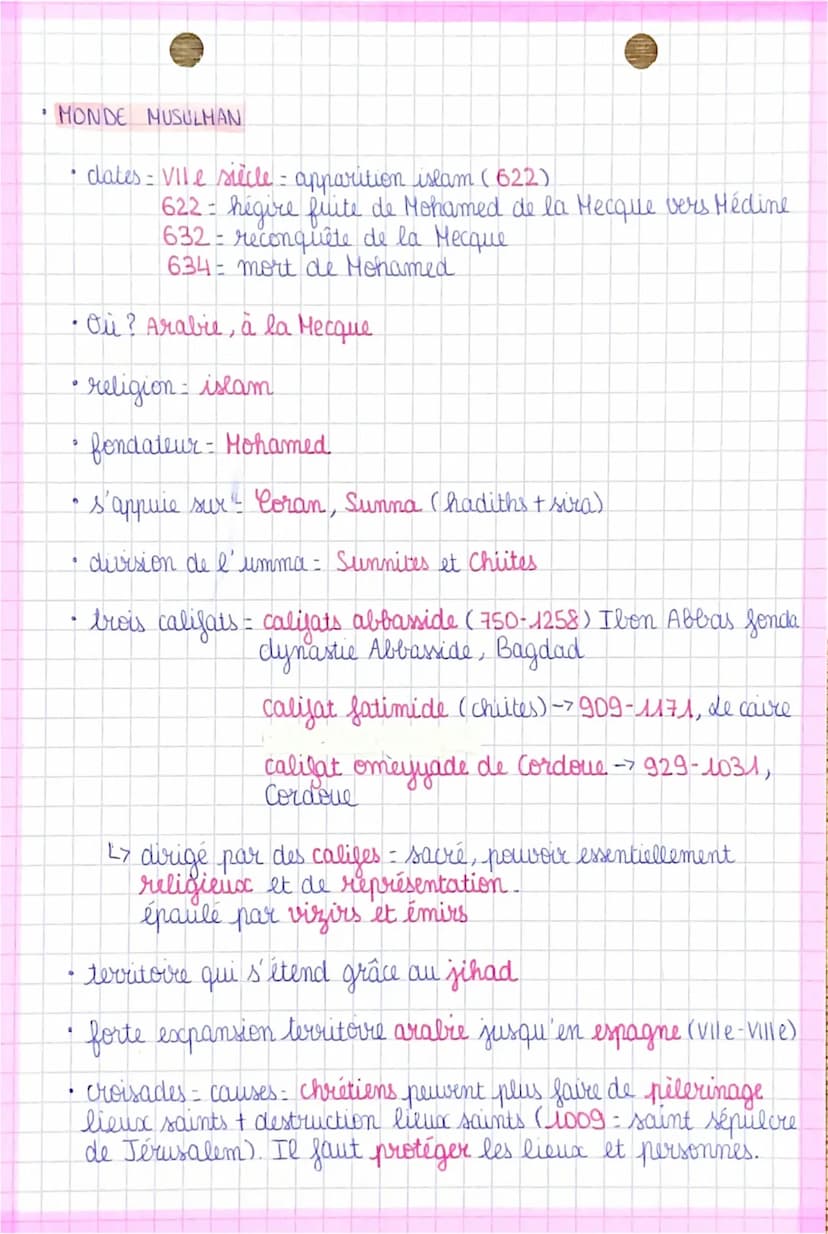 • MONDE MUSULMAN
• dates = VIIe siècle = apparition islam (622)
622 = hégire fuite de Mohamed de la Mecque vers Médine
632 = reconquête de la Mecque
634 = mort de Mohamed
• Où ? Arabie, à la Mecque
• religion = islam
• fondateur = Mohamed
• s'appuie sur = Coran, Sunna (hadiths + sira)
• division de l'umma = Sunnites et Chiites
• trois califats = califats abbasside (750-1258) Ibon Abbas fonda
dynastie Abbasside, Bagdad
califat fatimide (chiites) -> 909-1171, Le caire
califat omeyyade de Cordoue -> 929-1031,
Cordoue
↳ dirigé par des califes = sacré, pouvoir essentiellement
religieux et de représentation.
épaulé par vizirs et émirs
• territoire qui s'étend grâce au jihad
• forte expansion territoire arabie jusqu'en espagne (VIIe-VIIIe)
• croisades = causes = chrétiens peuvent plus faire de pèlerinage
lieux saints + destruction lieux saints (1009 = saint sépulcre
de Jérusalem). Il faut protéger les lieux et personnes.